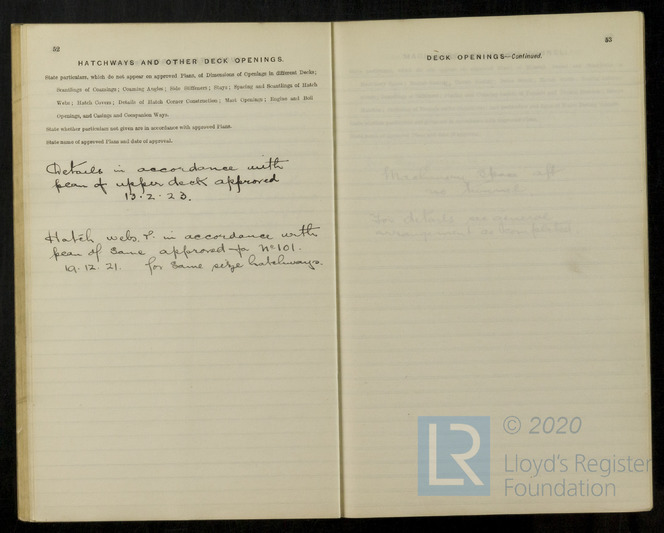 52
HATCHWAYS AND OTHER DECK OPENINGS.
State particulars, which do not appear on approved Plans, of Dimensions of Openings in different Decks;
Scantlings of Coamings; Coaming Angles; Side Stiffeners; Stays; Spacing and Scantlings of Hatch
Webs; Hatch Covers; Details of Hatch Corner Construction; Mast Openings; Engine and Boiler
Openings, and Casings and Companion Ways.
State whether particulars not given are in accordance with approved Plans.
State name of approved Plans and date of approval.
Details in accordance with
plan of upper deck approved
13.2.23.
Hatch webs &c in accordance with
plan of same approved for No 101.
19.12.21. for same size hatchways.
53
DECK OPENINGS—Continued.
Machinery space aft
no tunnel
For details see general
arrangement as completed
LR
© 2020
Lloyd's Register
Foundation